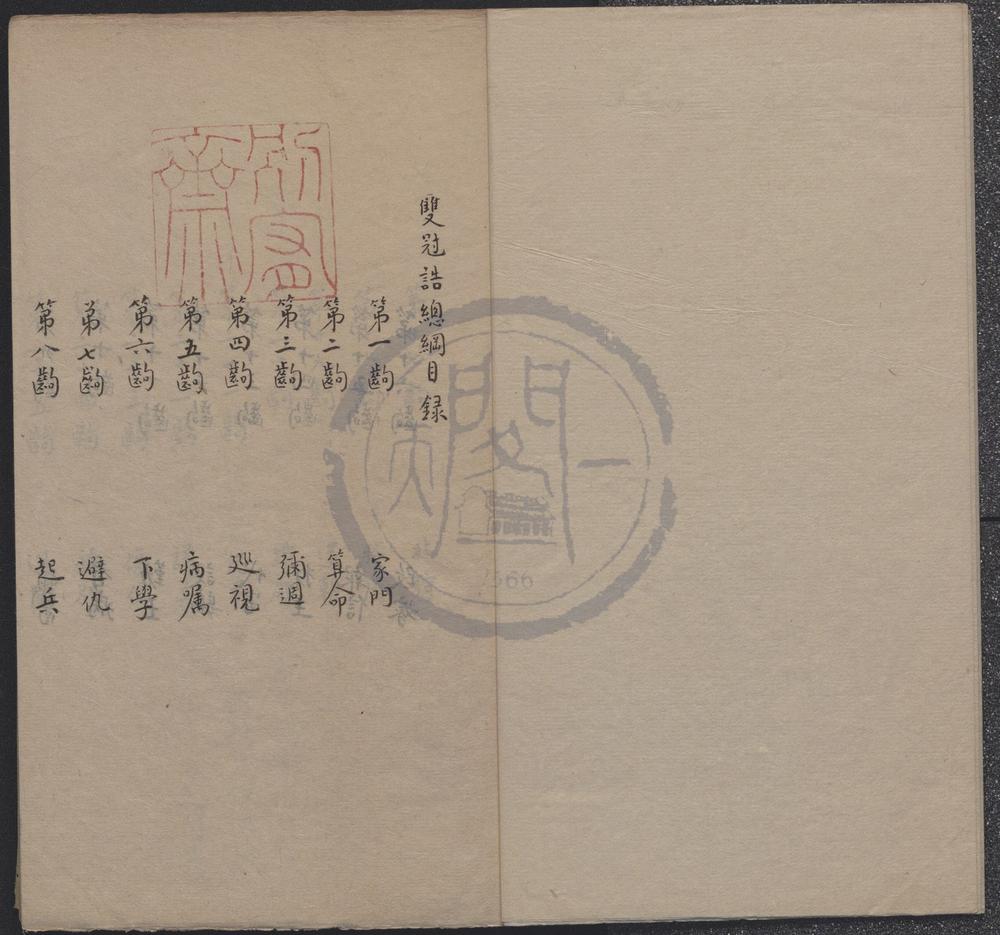 雙冠誥總綱目録
第一齣 家門
第二齣 算命
第三齣 彌週
第四齣 巡視
第五齣 病嘱
第六齣 下學
第七齣 避仇
第八齣 起兵